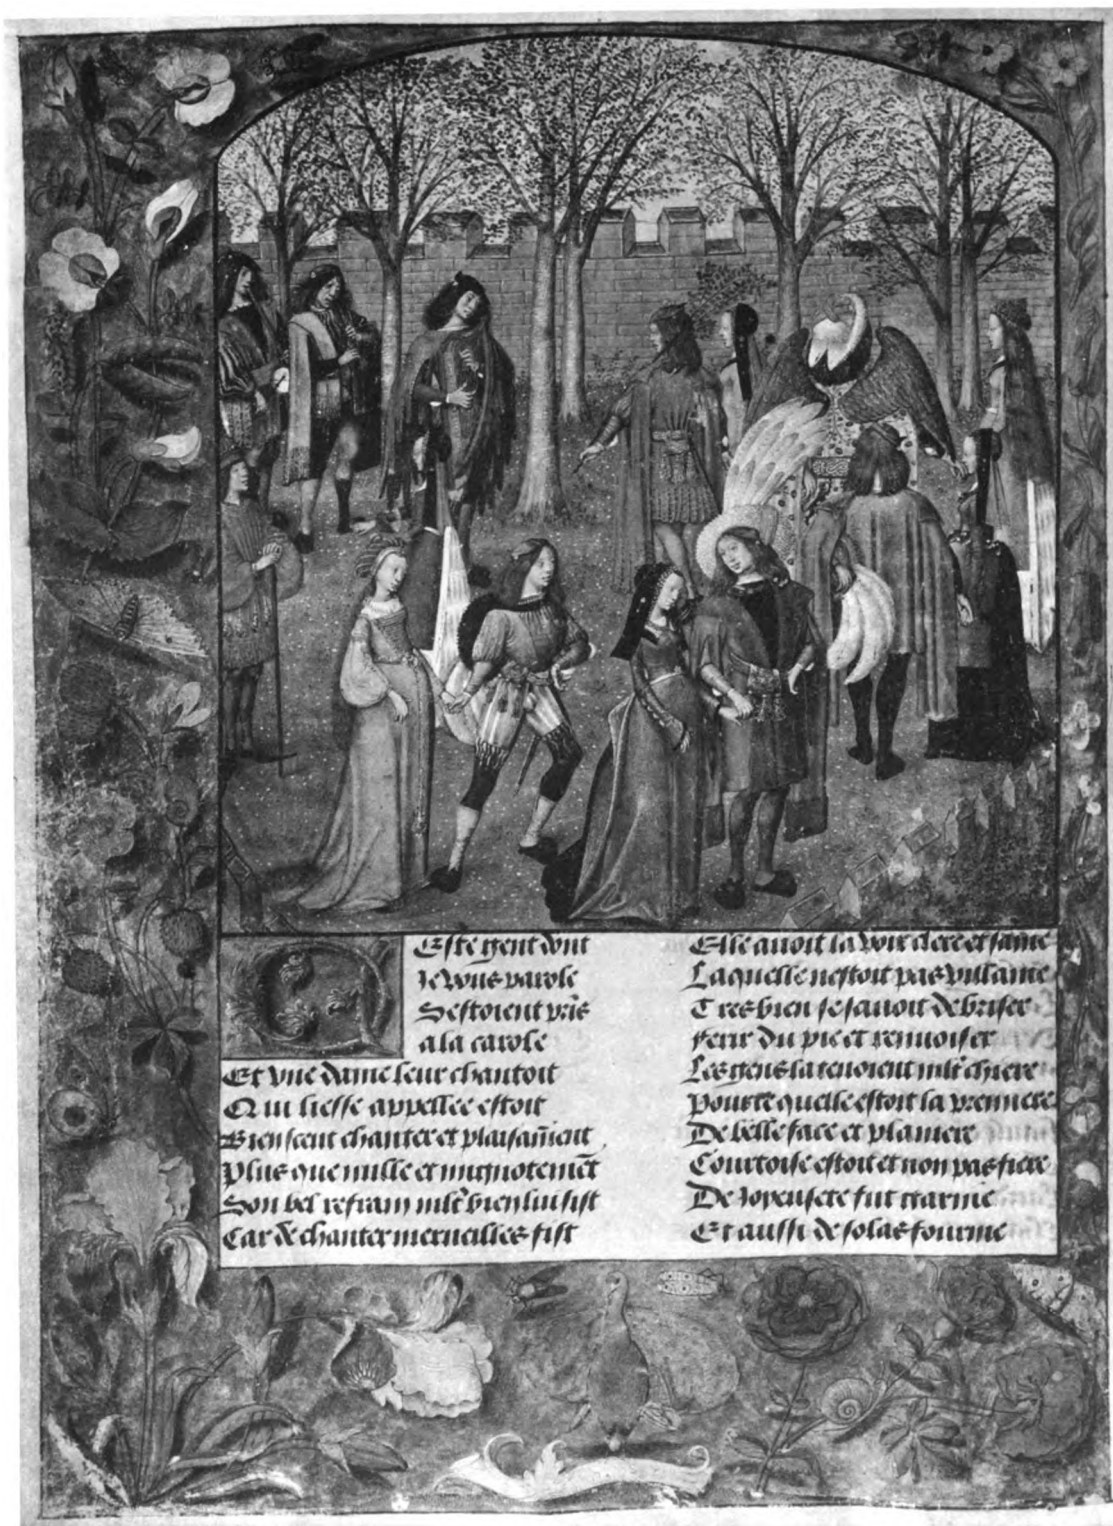 Ceste gent dont
Je vous parole
Sestoient pris
a la carole
Et vne dame leur chantoit
Qui liesse appellee estoit
Bien scent chanter et plaisam̄ent
Plus que nulle et mignotemēt
Son bel refrain mlt bien lui sist
Car de chanter merueilles fist
Elle auoit la voix clere et saine
Laquelle nestoit pas villaine
Tres bien se sauoit debriser
Ferir du pie et renuoiser
Les gens la tenoient mlt chiere
Pource quelle estoit la premiere
De belle face et planiere
Courtoise estoit et non pas fiere
De ioyeusete fut
Et aussi de solas fournie